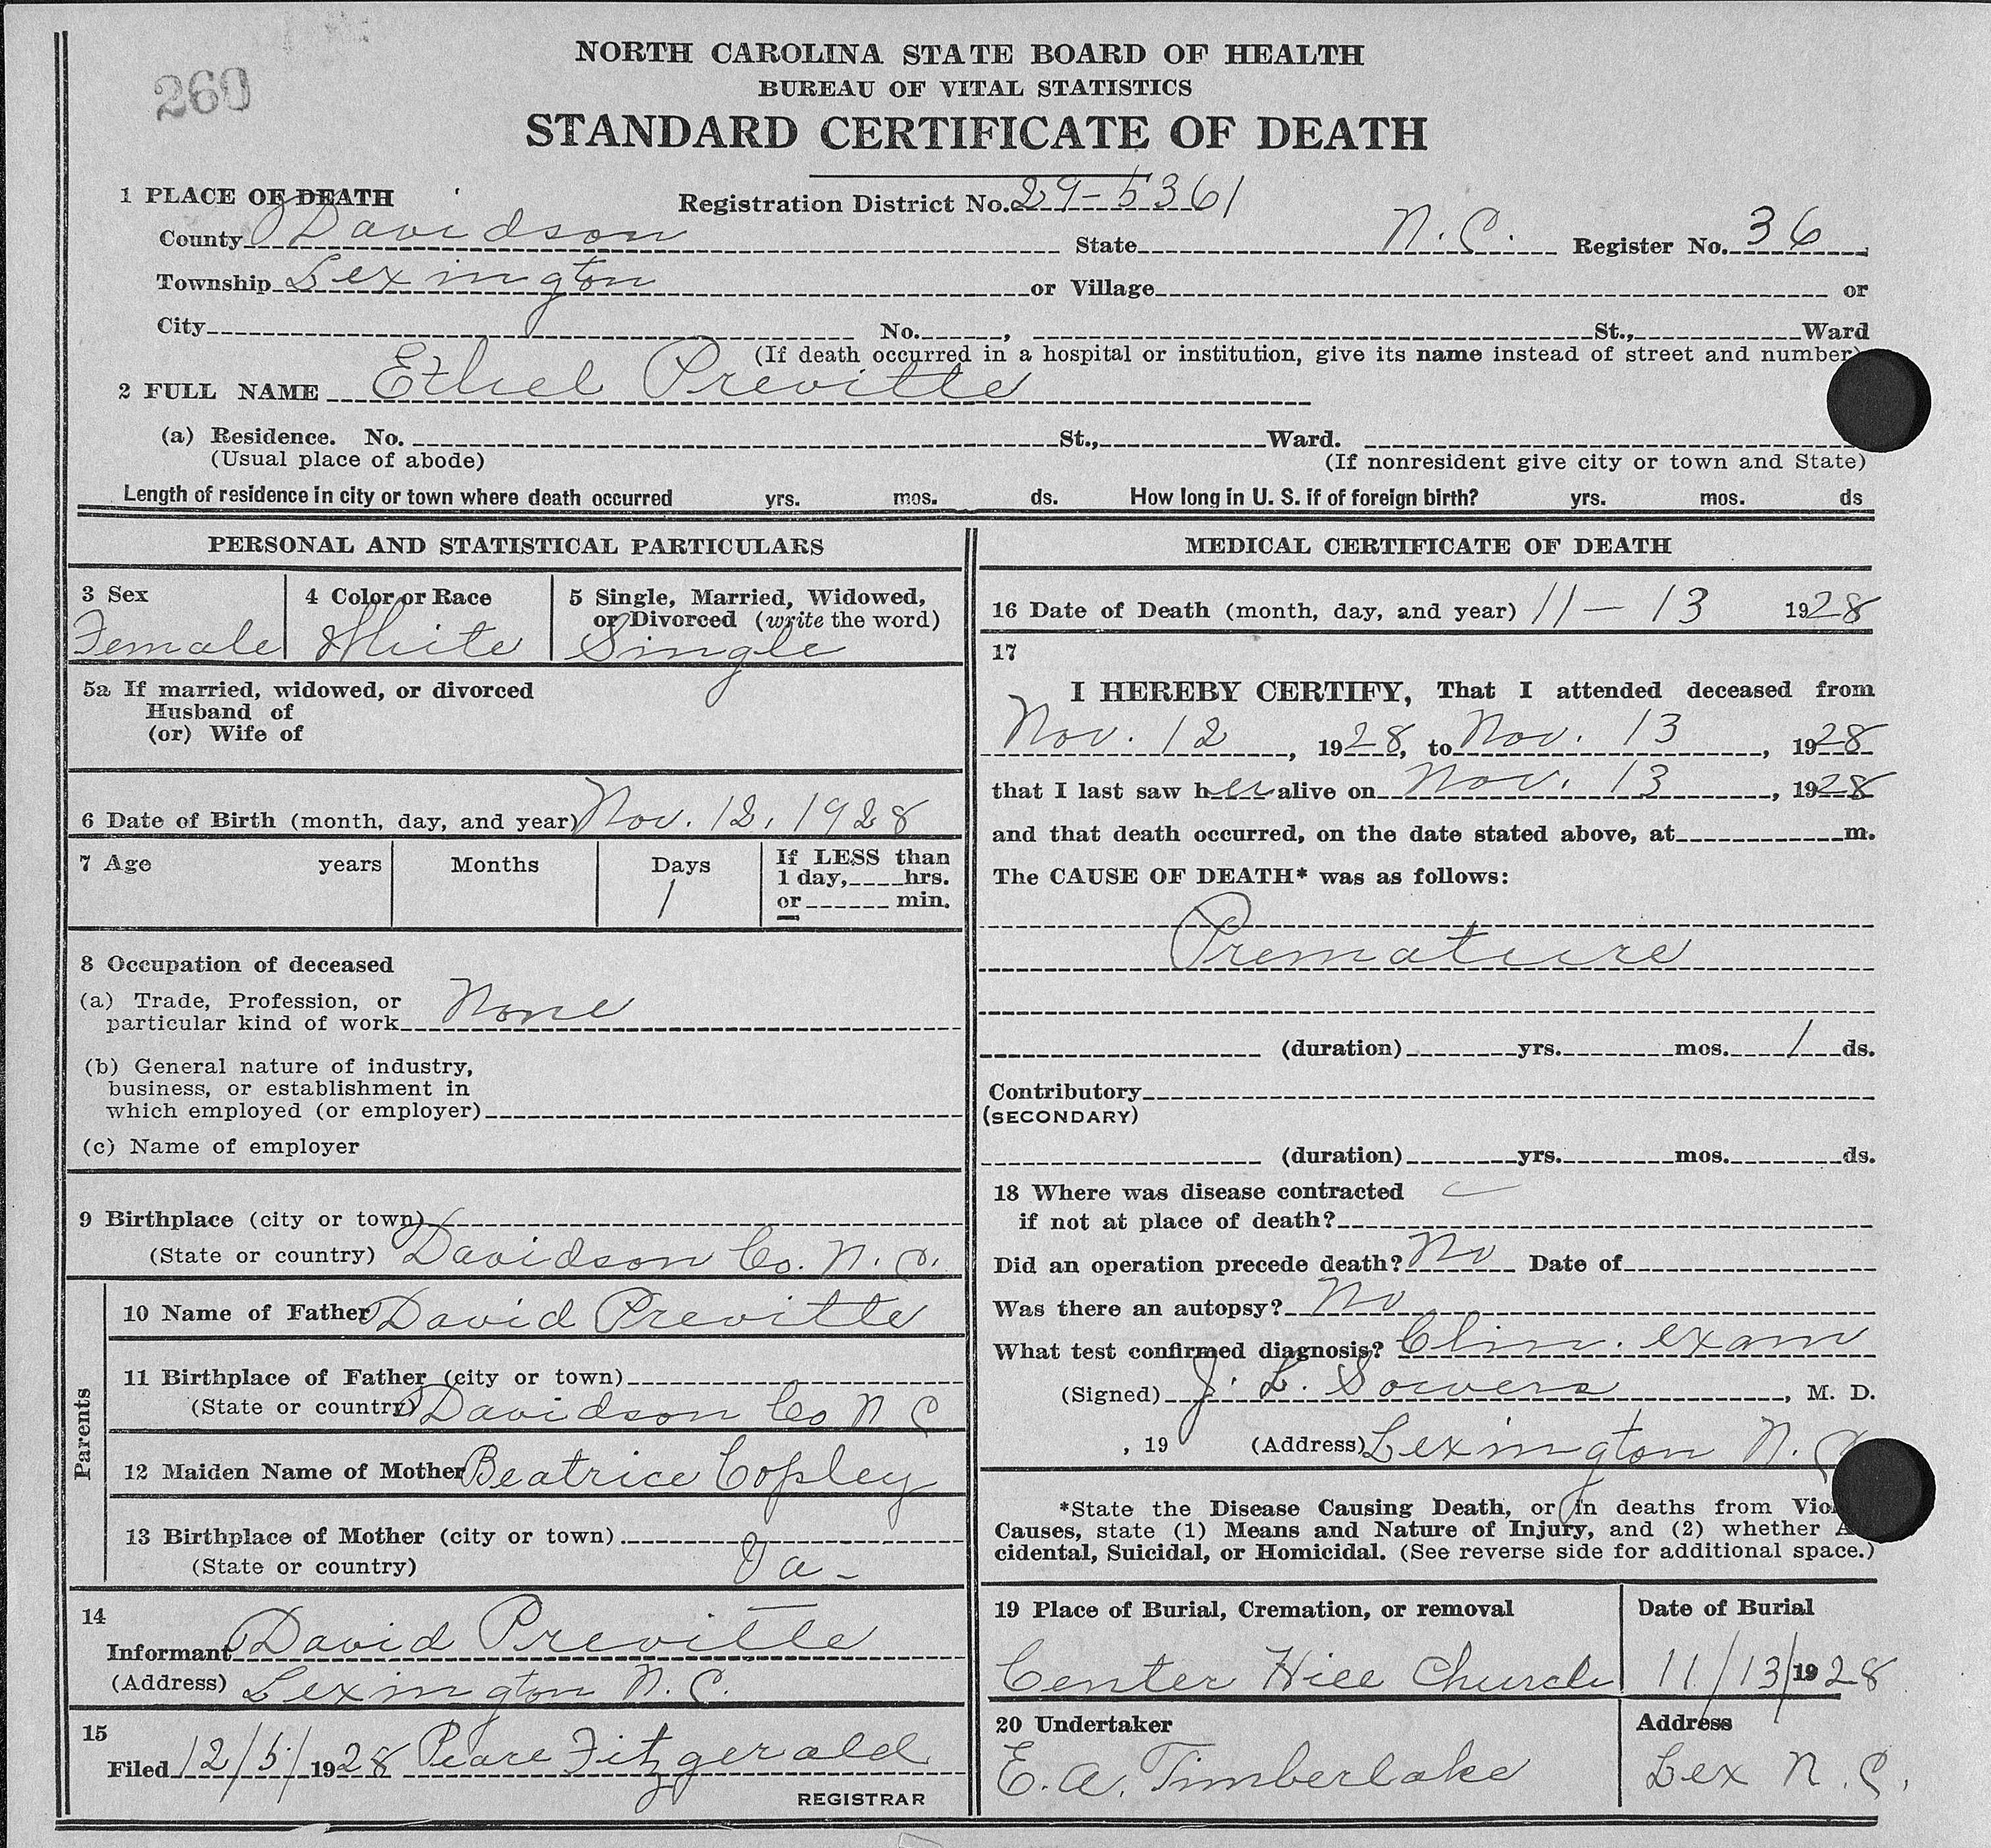 260
NORTH CAROLINA STATE BOARD OF HEALTH
BUREAU OF VITAL STATISTICS
STANDARD CERTIFICATE OF DEATH
1 PLACE OF DEATH Registration District No. 29-5361
County Davidson State N.C. Register No. 36
Township Lexington or Village or
City No. , St., Ward
(If death occurred in a hospital or institution, give its name instead of street and number)
2 FULL NAME Ethel Previtte
(a) Residence. No. St., Ward.
(Usual place of abode) (If nonresident give city or town and State)
Length of residence in city or town where death occurred yrs. mos. ds. How long in U. S. if of foreign birth? yrs. mos. ds
PERSONAL AND STATISTICAL PARTICULARS
3 Sex 4 Color or Race 5 Single, Married, Widowed,
or Divorced (write the word)
Female White Single
5a If married, widowed, or divorced
Husband of
(or) Wife of
6 Date of Birth (month, day, and year) Nov. 12, 1928
7 Age years Months Days If LESS than
1 day, hrs.
1 or min.
8 Occupation of deceased
(a) Trade, Profession, or
particular kind of work None
(b) General nature of industry,
business, or establishment in
which employed (or employer)
(c) Name of employer
9 Birthplace (city or town)
(State or country) Davidson Co. N. C.
Parents
10 Name of Father David Previtte
11 Birthplace of Father (city or town)
(State or country) Davidson Co N C
12 Maiden Name of Mother Beatrice Copley
13 Birthplace of Mother (city or town)
(State or country) Va-
14
Informant David Previtte
(Address) Lexington N. C.
15
Filed 12/5/1928 Peare Fitzgerald
REGISTRAR
MEDICAL CERTIFICATE OF DEATH
16 Date of Death (month, day, and year) 11-13 1928
17
I HEREBY CERTIFY, That I attended deceased from
Nov. 12, 1928, to Nov. 13, 1928
that I last saw her alive on Nov. 13, 1928
and that death occurred, on the date stated above, at m.
The CAUSE OF DEATH* was as follows:
Premature
(duration) yrs. mos. 1 ds.
Contributory
(SECONDARY)
(duration) yrs. mos. ds.
18 Where was disease contracted
if not at place of death?
Did an operation precede death? No Date of
Was there an autopsy? No
What test confirmed diagnosis? Clin. exam
(Signed) J. L. Sowers, M. D.
, 19 (Address) Lexington N. C
*State the Disease Causing Death, or in deaths from Vio
Causes, state (1) Means and Nature of Injury, and (2) whether A
cidental, Suicidal, or Homicidal. (See reverse side for additional space.)
19 Place of Burial, Cremation, or removal Date of Burial
Center Hill Church 11/13/1928
20 Undertaker Address
E. A. Timberlake Lex N. C.